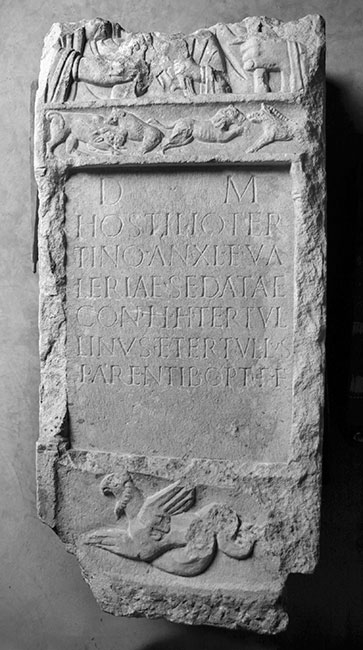 D M
HOSTILIO TER
TINO AN XL ET VA
LERIAE SEDATAE
CON HH TERTVL
LINVS ET TERTVLLVS
PARENTIB OPT F F